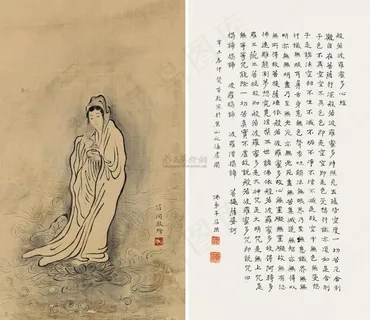 般若波羅蜜多心經
觀自在菩薩行深般若波羅蜜多時照見五蘊皆空度一切苦厄舍利
子色不異空空不異色色即是空空即是色受想行識亦復如是舍利
子是諸法空相不生不滅不垢不淨不增不減是故空中無色無受想
行識無眼耳鼻舌身意無色聲香味觸法無眼界乃至無意識界無無
明亦無無明盡乃至無老死亦無老死盡無苦集滅道無智亦無得以
無所得故菩提薩埵依般若波羅蜜多故心無罣礙無罣礙故無有恐
怖遠離顛倒夢想究竟涅槃三世諸佛依般若波羅蜜多故得阿耨多
羅三藐三菩提故知般若波羅蜜多是大神咒是大明咒是無上咒是
無等等咒能除一切苦真實不虛故說般若波羅蜜多咒即說咒曰
揭諦揭諦 波羅揭諦 波羅僧揭諦 菩提薩婆訶
佛弟子
敬繪